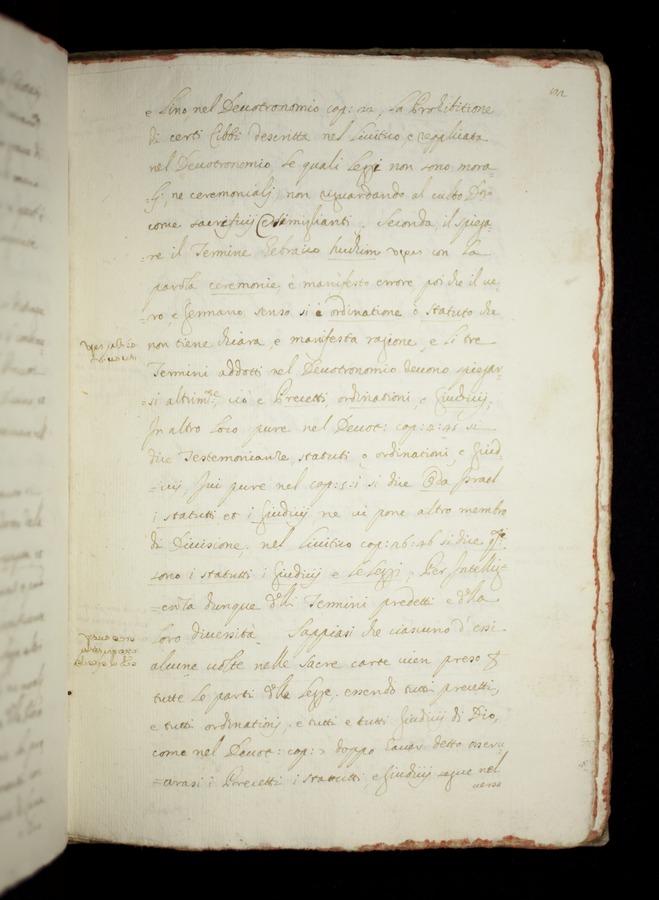 e Lino nel Deuotronomio cap: 22, la Prohibitione
di certi Cibbi descritta nel Leuitico, e reppligata
nel Deuotronomio le quali leggi non sono mora=
=lj, ne ceremonialj, non riguardando al culto
come sacrificij e simiglianti. Seconda, il spiega=
=re il Termine Hebraico hukim con la
parola ceremonie è manifesto errore poi che il ue=
=ro, e germano senso si è ordinatione o statuto che
non tiene chiara, e manifesta ragione, e li tre
Termini addotti nel Deuotronomio deuono spiegar=
=si altrim.te, cio è Precetti ordinationi, e Giudicij,
In altro loco pure nel Deuot: cap: 4: 45 si
dice Testemonianze, statuti o ordinationi, e Giud=
=icij, Iui pure nel cap: 5: 1 si dice Israel
i statutti et i Giudicij ne ui pone altro membro
di Diuisione, nel Leuitico cap: 26: 46 si dice
sono i statutti i Giudicij e le Leggi, Per Intelli=
=enza dunque delli Termini predetti e della
loro diuersità Sappiasi che ciascuno d'essi
alcune uolte nelle sacre carte uien preso
tutte le parti della legge, essendo tutti precetti,
e tutti ordinationj, e tutti e tutti Giudicij di Dio,
come nel Deuot: cap: 7 doppo hauer detto osseru=
=arasi i Precetti i statutti, e Giudicij segue nel
uerso